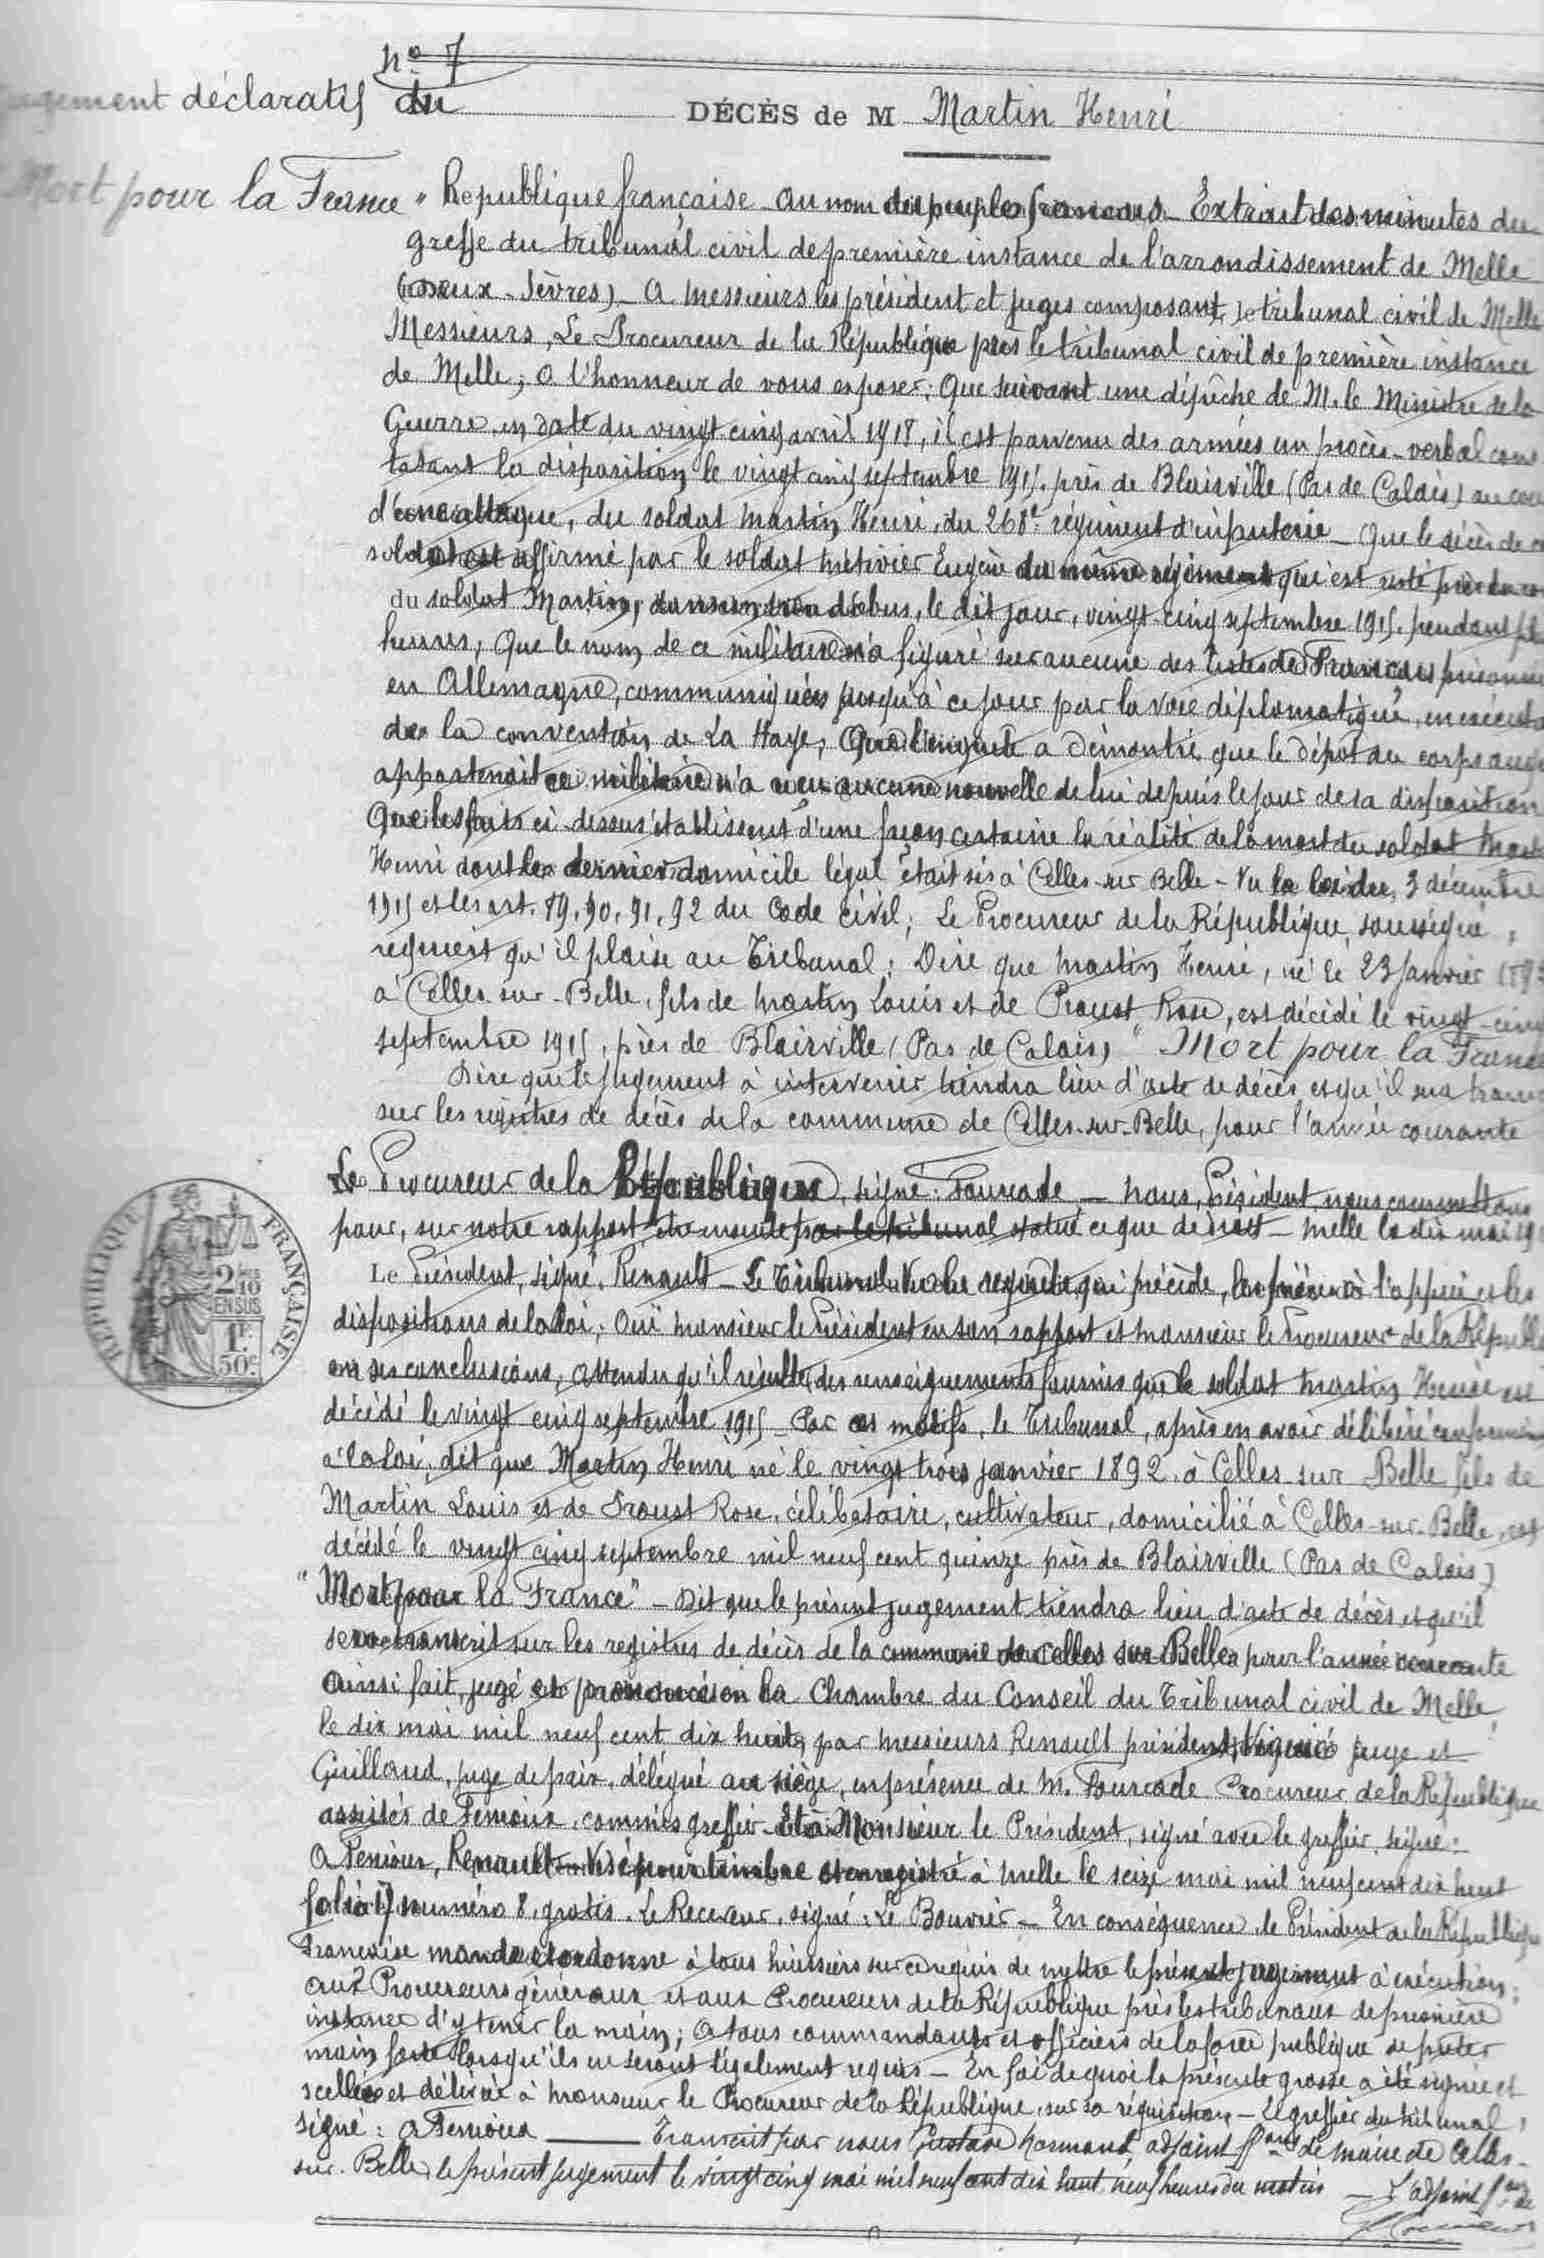 nº 7
jugement déclaratif du
DÉCÈS de M Martin Henri
Mort pour la France
" République française - au nom du peuple français - Extrait des minutes du
greffe du tribunal civil de première instance de l'arrondissement de Melle
(Deux-Sèvres) - A Messieurs les président et juges composant le tribunal civil de Melle
Messieurs, Le Procureur de la République près le tribunal civil de première instance
de Melle, a l'honneur de vous exposer: Que suivant une dépêche de M. le Ministre de la
Guerre, en date du vingt cinq avril 1918, il est parvenu des armées un procès-verbal cons
tatant la disparition le vingt cinq septembre 1915, près de Blairville (Pas de Calais) au cou
d'une attaque, du soldat Martin Henri, du 268e régiment d'infanterie - Que le décès de ce
soldat est affirmé par le soldat Métivier Eugène du même régiment qui est resté près du co
du soldat Martin, le dit jour, vingt-cinq septembre 1915, pendant
heures, Que le nom de ce militaire n'a figuré sur aucune des listes de Français prisonnie
en Allemagne, communiquées jusqu'à ce jour par la voie diplomatique, en exécut
de la convention de La Haye, Que l'enquête a démontré que le dépôt du corps auqu
appartenait ce militaire n'a reçu aucune nouvelle de lui depuis le jour de sa disparition
Que les faits ci-dessus établissent d'une façon certaine la réalité de la mort du soldat Mart
Henri dont le dernier domicile légal était sis à Celles-sur Belle - Vu la loi du 3 décembre
1915 et les art. 89, 90, 91, 92 du Code civil; Le Procureur de la République, soussigné,
requiert qu'il plaise au Tribunal: Dire que Martin Henri, né le 23 janvier 189
à Celles-sur-Belle, fils de Martin Louis et de Proust Rose, est décédé le vingt-cinq
septembre 1915, près de Blairville (Pas de Calais) " Mort pour la France
Dire que le jugement à intervenir tiendra lieu d'acte de décès, et qu'il sera trans
sur les registres de décès de la commune de Celles-sur-Belle, pour l'année courante
Le Procureur de la République, signé: Fourcade - Nous, Président, nous commettons
pour, sur notre rapport, être ensuite par le tribunal statué ce que de droit - Melle le dix mai 19
Le Président, signé, Renault - Le Tribunal: Vu la requête qui précède, les pièces à l'appui et les
dispositions de la loi; Ouï Monsieur le Président en son rapport et Monsieur le Procureur de la Républi
en ses conclusions, attendu qu'il résulte des renseignements fournis que le soldat Martin Henri est
décédé le vingt cinq septembre 1915 - Par ces motifs, le Tribunal, après en avoir délibéré conformé
à la loi, dit que Martin Henri né le vingt trois janvier 1892, à Celles sur Belle fils de
Martin Louis et de Proust Rose, célibataire, cultivateur, domicilié à Celles-sur-Belle, est
décédé le vingt cinq septembre mil neuf cent quinze près de Blairville (Pas de Calais)
"Mort pour la France" - Dit que le présent jugement tiendra lieu d'acte de décès et qu'il
sera transcrit sur les registres de décès de la commune de Celles sur Belle pour l'année courante
Ainsi fait, jugé et prononcé en la Chambre du Conseil du Tribunal civil de Melle,
le dix mai mil neuf cent dix huit, par Messieurs Renault président, Viguié juge et
Guillaud, juge de paix, délégué au siège, en présence de M. Fourcade Procureur de la République
assistés de Fenioux, commis greffier - Monsieur le Président, signé avec le greffier, signé:
A Fenioux, Renault - Visé pour timbre et enregistré à Melle le seize mai mil neuf cent dix huit
folio 17 numéro 8, gratis. Le Receveur, signé: Le Bouvier - En conséquence, le Président de la République
Française mande et ordonne à tous huissiers sur ce requis de mettre le présent jugement à exécution;
aux Procureurs généraux et aux Procureurs de la République près les tribunaux de première
instance d'y tenir la main; A tous commandants et officiers de la force publique de prêter
main forte lorsqu'ils en seront légalement requis - En foi de quoi la présente grosse a été signée et
scellée et délivrée à Monsieur le Procureur de la République, sur sa réquisition - Le greffier du tribunal,
signé: A Fenioux - Transcrit par nous Gustave Normand adjoint f.ons de maire de Celles-
sur-Belle, le présent jugement le vingt cinq mai mil neuf cent dix huit, neuf heures du matin - L'adjoint f.ons de
RÉPUBLIQUE FRANÇAISE
2 10 EN SUS
1F 50c